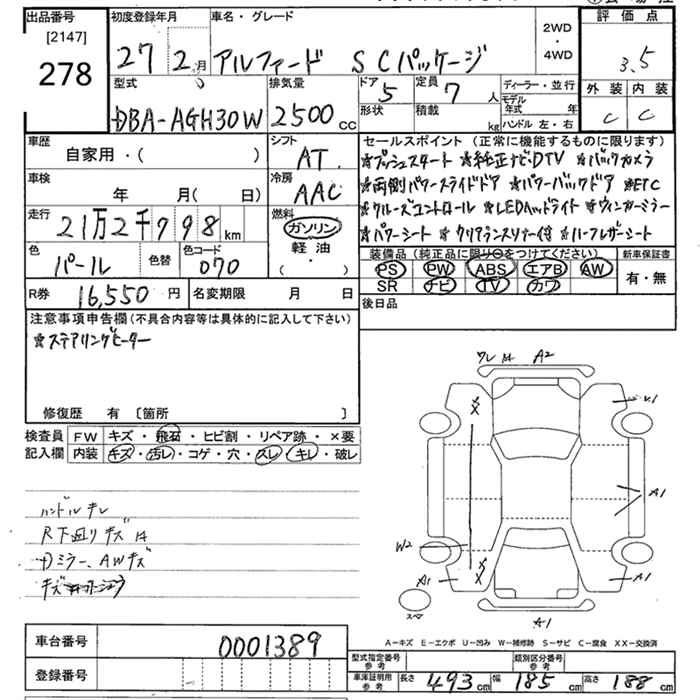 出品番号 初度登録年月 車名・グレード 2WD・4WD 評価点
[2147] 278 27 2月 アルファード SCパッケージ 3.5
型式 排気量 ドア 5 定員 7人 ディーラー・並行 外装 内装
DBA-AGH30W 2500cc 形状 積載 kg モデル年式 年 ハンドル 左・右 C C
車歴 自家用・( ) シフト AT セールスポイント(正常に機能するものに限ります)
*プッシュスタート *純正ナビ・DTV *バックカメラ
車検 年 月(日) 冷房 AAC *両側パワースライドドア *パワーバックドア *ETC
走行 21万2千998km 燃料 ガソリン・軽油・( ) *クルーズコントロール *LEDヘッドライト *ウィンカーミラー
*パワーシート *クリアランスソナー付 *ハーフレザーシート
色 パール 色替 色コード 070 装備品(純正品に限り○をつけてください) 新車保証書
PS PW ABS エアB AW 有・無
SR ナビ TV カワ
R券 16,550円 名変期限 月 日 後日品
注意事項申告欄(不具合内容等は具体的に記入して下さい)
*ステアリングヒーター
修復歴 有 〔箇所 〕
検査員 FW キズ・飛石・ヒビ割・リペア跡・×要
記入欄 内装 キズ・汚レ・コゲ・穴・スレ・キレ・破レ
ハンドルキレ
R下廻りキズ
Dミラー、AWキズ
ワレ A2
A1
W2
A1 A1
スペア
A1
A-キズ E-エクボ U-凹み W-補修跡 S-サビ C-腐食 XX-交換済
車台番号 0001389 型式指定番号 参考 類別区分番号 参考
登録番号 車庫証明用 参考 長さ 493cm 幅 185cm 高さ 188cm